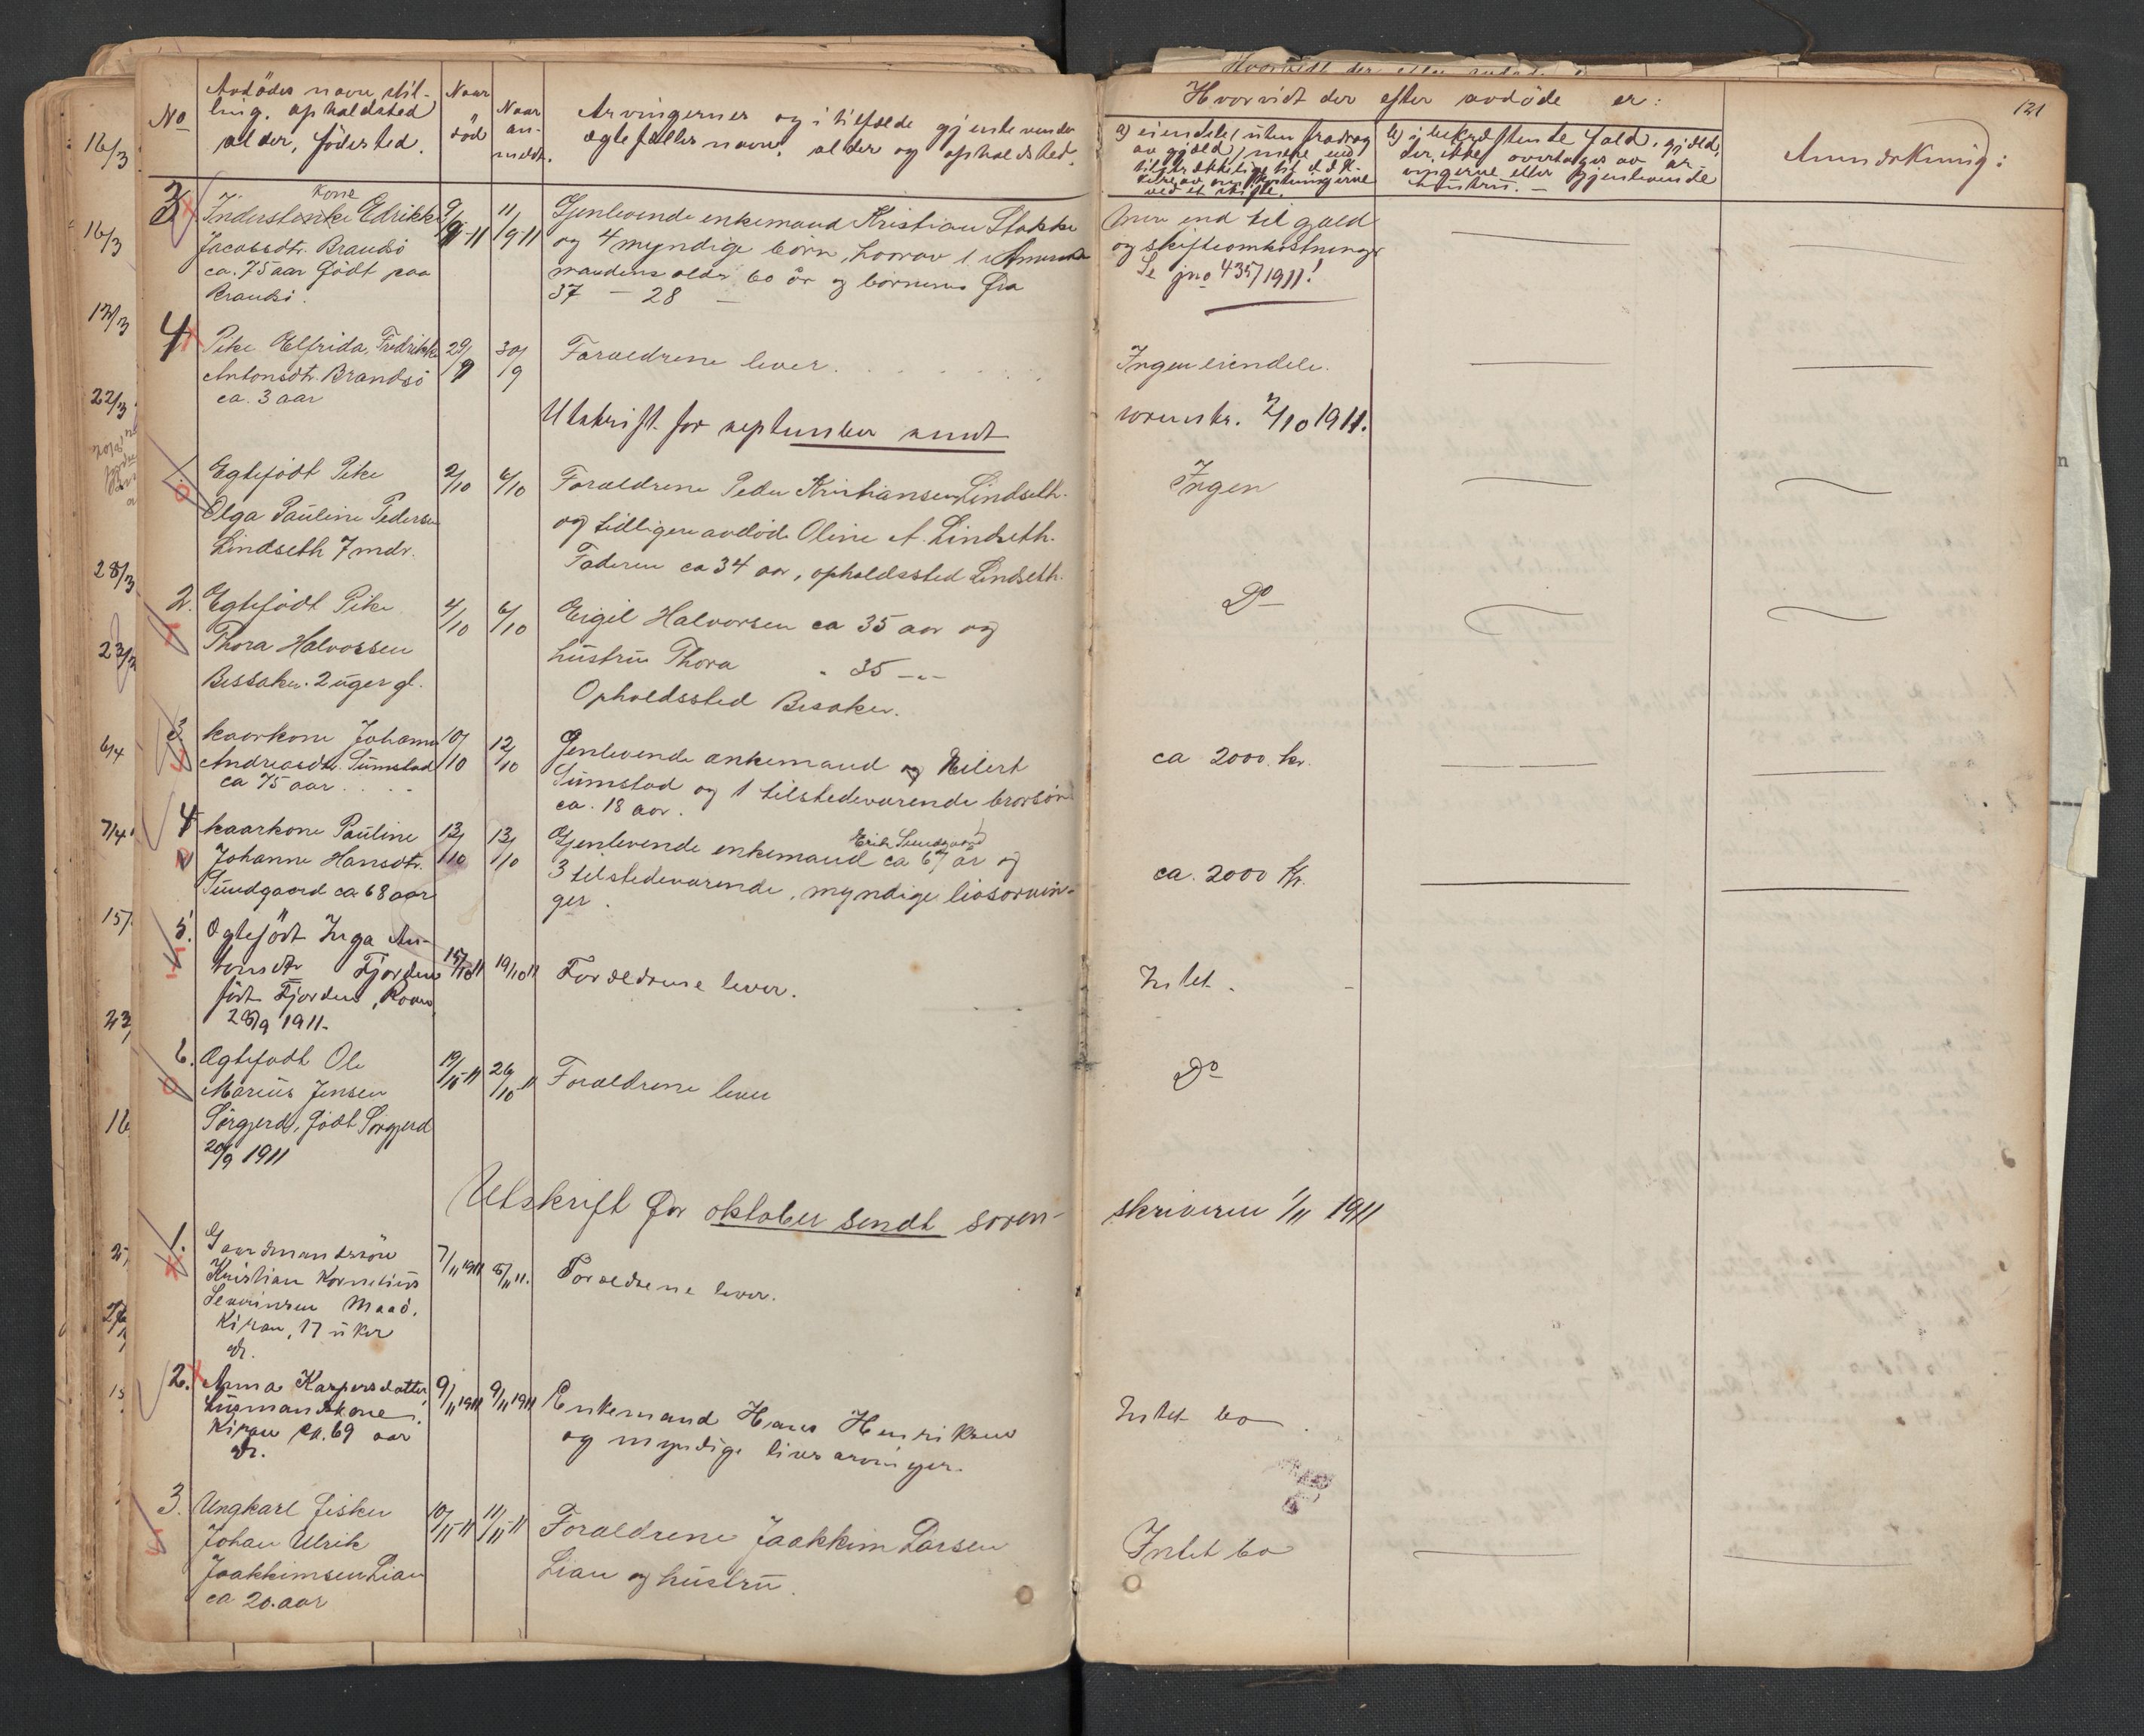 121
No
Avdödes navn, stil-
ling, opholdsted
alder, födested.
Naar
död
Naar
an-
meldt.
Arvingernes og i tilfælde gjenlevende
ægtefælles navn, alder og opholdsted.
Hvorvidt der efter avdöde er:
a) eiendele (uten fradrag
av gjæld) mere end
tilstrækkelige til dæk-
ved et skifte.
b) i bekræftende fald, gjæld,
der ikke overtages av ar-
vingerne eller gjenlevende
hustru. –
Anmerkning:
3
kone
Edrikke
Jacobsdtr. Brandsö
ca. 75 aar Födt paa
Brandsö.
9/9-11
11/9-11
Gjenlevende enkemand Kristian Stokke
og 4 myndige börn, hvorav 1 i Amerika
mandens alder 60 år og börnenes fra
37 – 28 –
Mere end til gjæld
og skifteomkostninger
Se jno 435/1911!
4
Pike Elfrida Fredrikke
Antonsdtr. Brandsö
ca. 3 aar
29/9
30/9
Foræeldrene lever.
Ingen eiendele.
Utskrift for september sendt
sorenskr. 2/10 1911.
1.
Egtefödt Pike
Olga Pauline Pedersen
Lindseth 7 mdr.
2/10
6/10
Foræeldrene Peder Kristiansen Lindseth
og tidligere avdöde Oline A. Lindseth.
Faderen ca 34 aar, opholdssted Lindseth.
Ingen
2.
Egtefödt Pike
Thora Halvorsen
Bessaker. 2 uger gl.
4/10
6/10
Eigil Halvorsen ca 35 aar og
hustru Thora " 35 -"-
Opholdssted Besaker.
Do
3
kaarkone Johanna
Andreasdtr. Sumstad
ca 75 aar
10/10
12/10
Genlevende ænkemand og Eilert
Sumstad og 1 tilstedeværende brorsön
ca. 18 aar.
ca 2000 kr.
4
kaarkone Pauline
Johanne Hansdtr.
Sundgaard ca 68 aar
13/10
13/10
Erik Sundgaard
Gjenlevende enkemand ca 67 år og
3 tilstedeværende, myndige livsarvin-
ger.
ca. 2000 kr.
5.
Ogtefödt Inga An-
tonsdtr Fjorden
födt Fjorden, Roan
28/9 1911.
15/10 11
19/10 11
Foræeldrene lever.
Intet.
6.
Ægtefödt Ole
Marius Jensen
Sörgjerd, födt Sörgjerd
20/9 1911
19/10-11
26/10-11
Foræeldrene lever
Do
Utskrift for oktober sendt soren-
skriveren 1/11 1911
1.
Gaardmandssön
Kristian Kornelius
Severinsen Maaö,
Kiran, 17 uker
gl.
7/11 1911
8/11 11.
Foræeldrene lever.
2.
Anna Kaspersdatter
husmandskone
Kiran ca. 69 aar
gl.
9/11 1911
9/11 1911
Enkemand Hans Henriksen
og myndige livsarvinger.
Intet bo
3.
Ungkarl fisker
Johan Ulrik
Joakkimsen Lian
ca 20 aar
10/11-11
11/11-11
Foræeldrene Joakkim Larsen
Lian og hustru.
Intet bo
16/3
16/3
22/3
28/3
23/3
6/4
7/4